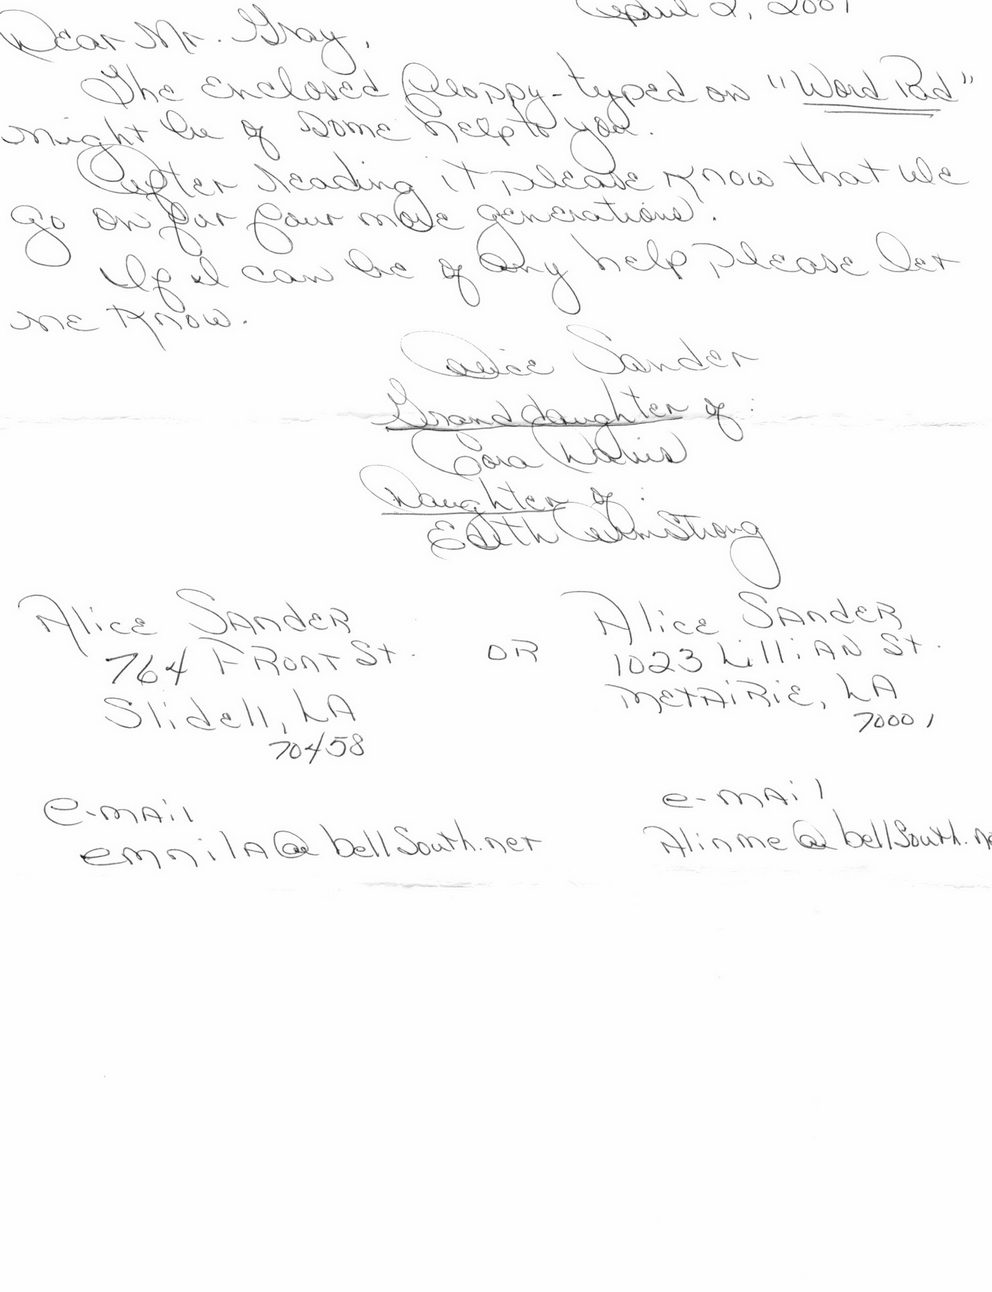 April 2, 2001
Dear Mr. Gray,
The enclosed floppy-typed on "Word Pad"
might be of some help to you.
After reading it please know that we
go on for four more generations.
If I can be of any help please let
me know.
Alice Sander
Granddaughter of:
Cora
Daughter of:
Edith Armstrong
Alice SANdER
764 FRONT St.
Slidell, LA
70458
OR
Alice SANdER
1023 LilliAN St.
METAiRiE, LA
70001
e-mAil
emnilA@bellSouth.net
e-mAil
Alinme@bellSouth.ne